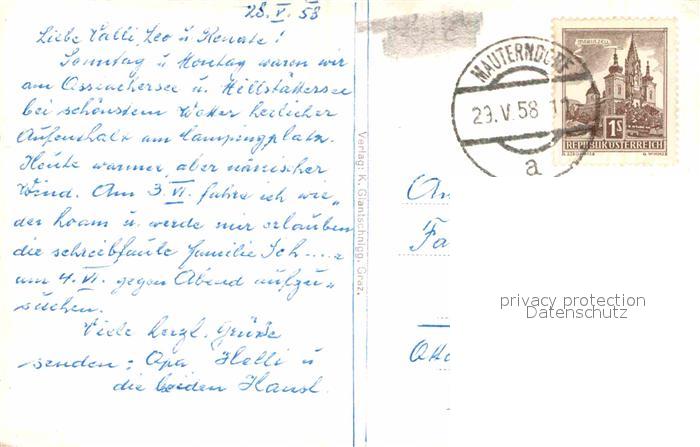 28. V. 58
Liebe Valli, Leo u Renate!
Sonntag u Montag waren wir
am Ossiachersee u. Millstättersee
bei schönstem Wetter herrlicher
Aufenthalt am Campingplatz.
Heute warmer, aber närrischer
Wind. Am 3. VI. fahre ich wie„
der hoam u. werde mir erlauben
die schreibfaule Familie Sch....e
am 4. VI. gegen Abend aufzu„
suchen.
Viele herzl. Grüße
senden: Opa, Helli u
die beiden Hansl.
Verlag: K. Glantschnigg, Graz.
MAUTERNDORF
29. V. 58 11
a
MARIAZELL
1S
REPUBLIK ÖSTERREICH
An
Fa
Otto
privacy protection
Datenschutz